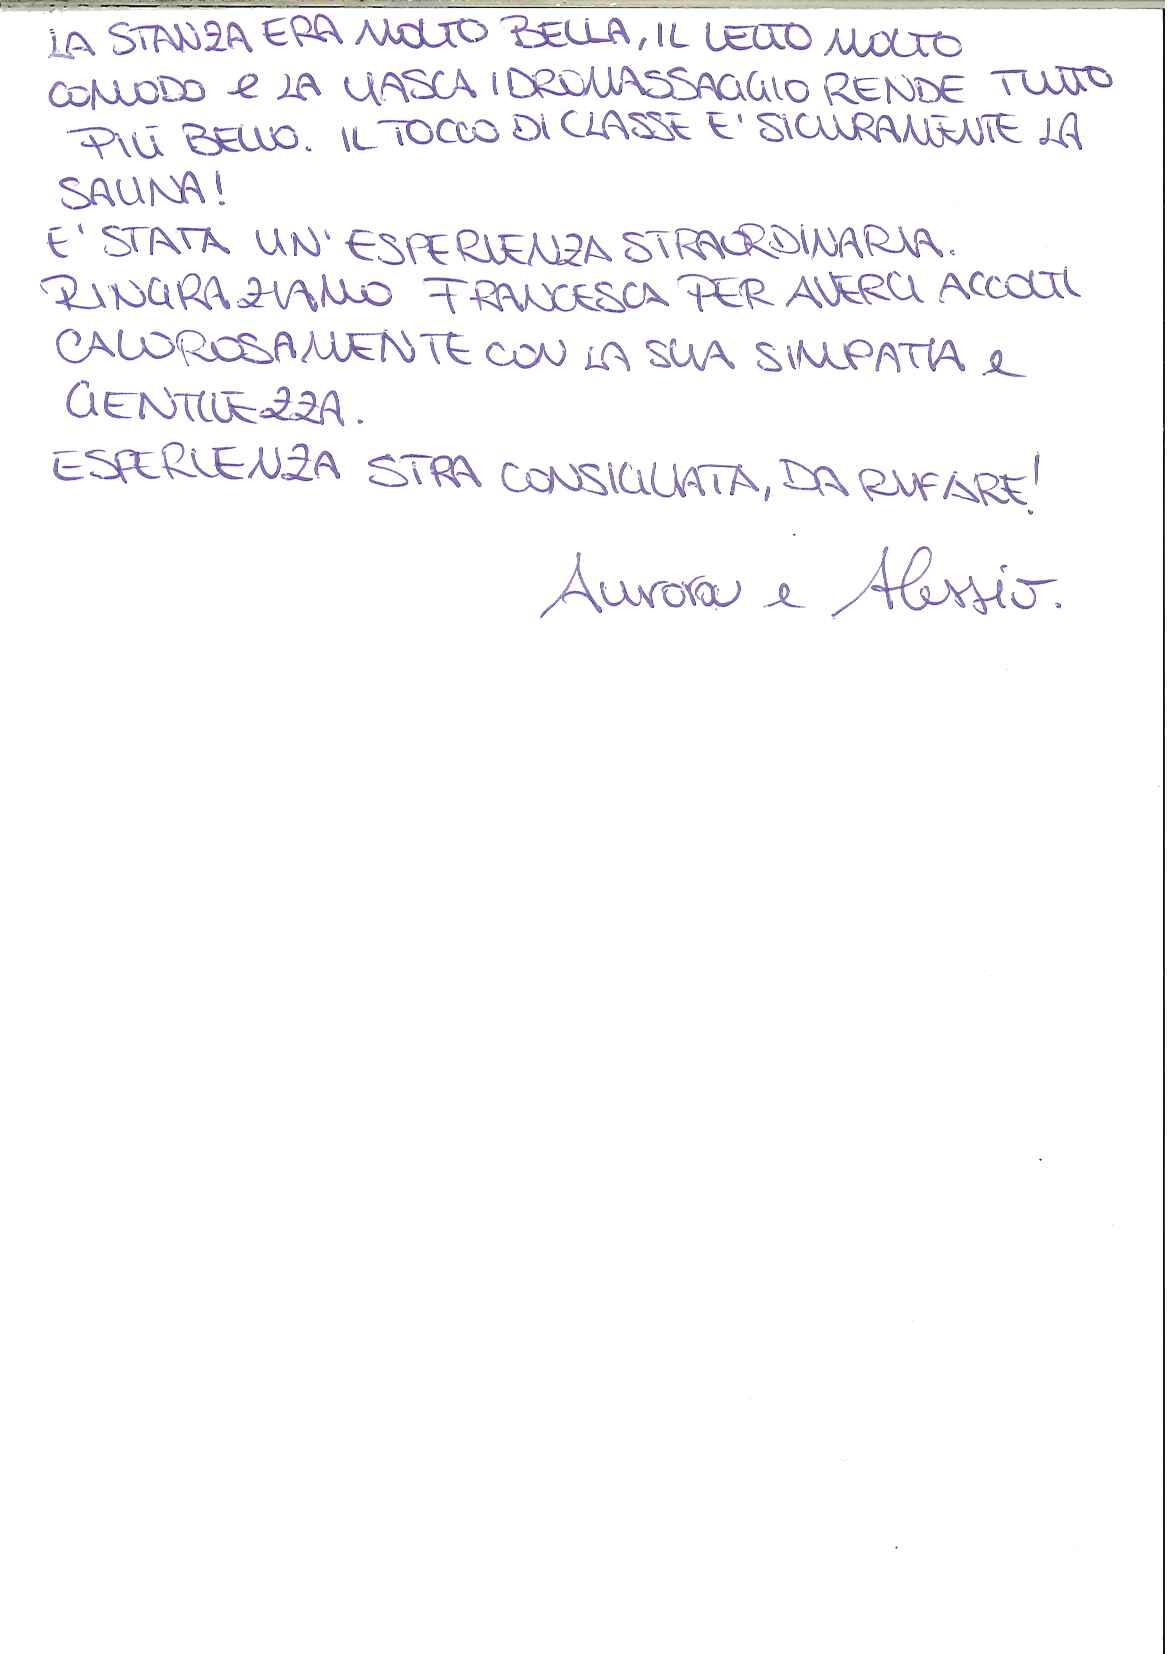 LA STANZA ERA MOLTO BELLA, IL LETTO MOLTO
COMODO e LA VASCA IDROMASSAGGIO RENDE TUTTO
PIÙ BELLO. IL TOCCO DI CLASSE E' SICURAMENTE LA
SAUNA!
E' STATA UN' ESPERIENZA STRAORDINARIA.
RINGRAZIAMO FRANCESCA PER AVERCI ACCOLTI
CALOROSAMENTE CON LA SUA SIMPATIA e
GENTILEZZA.
ESPERIENZA STRA CONSIGLIATA, DA RIFARE!
Aurora e Alessio.